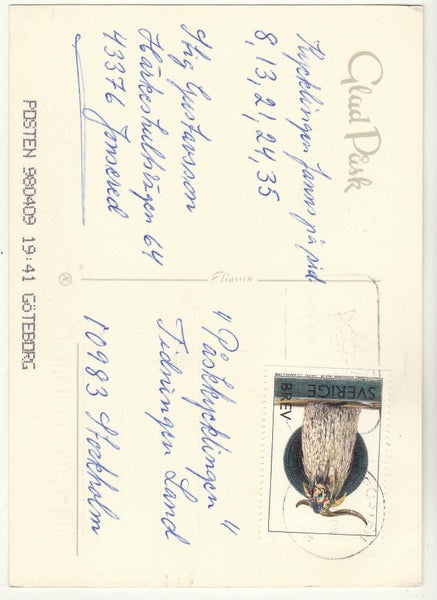 Glad Påsk
Kycklingen fanns på sid
8, 13, 21, 24, 35
Stig Gustavsson
Härkeshultsvägen 64
43376 Jonsered
POSTEN 980409 19:41 GÖTEBORG
"Påskkycklingen"
Tidningen Land
10983 Stockholm
SVERIGE
BREV